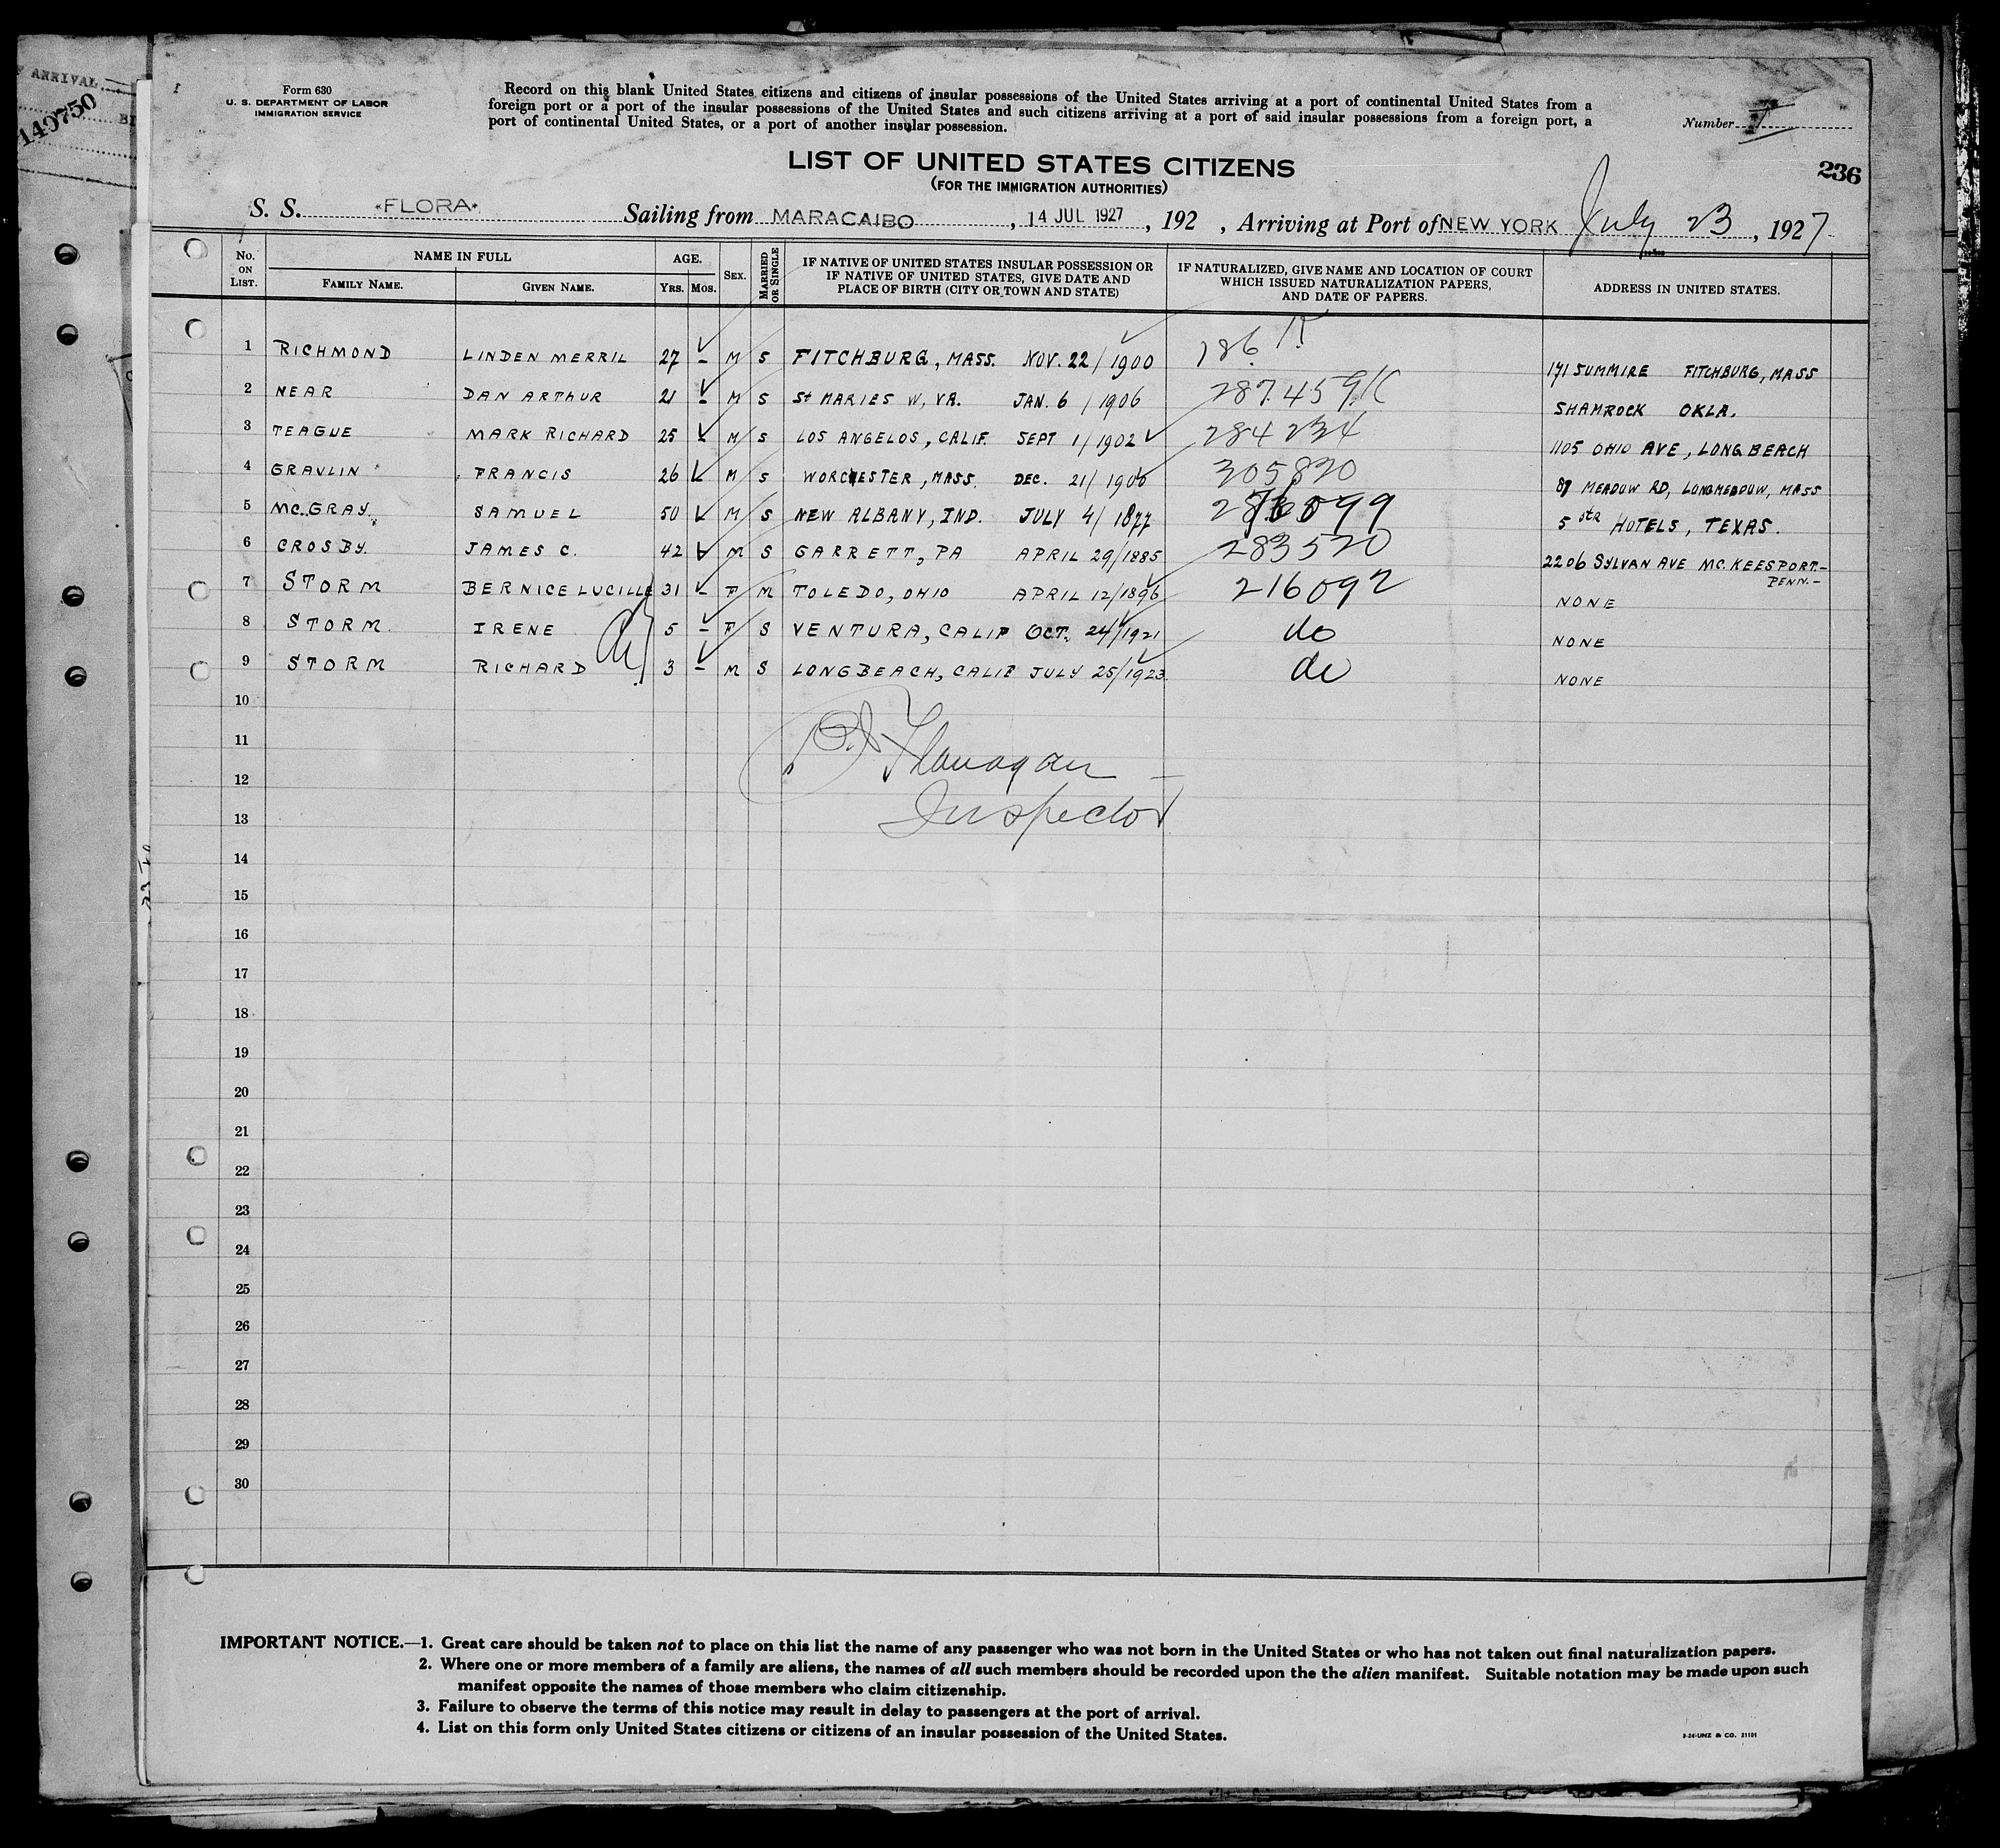 ARRIVAL
149750
Form 630
U. S. DEPARTMENT OF LABOR
IMMIGRATION SERVICE
Record on this blank United States citizens and citizens of insular possessions of the United States arriving at a port of continental United States from a
foreign port or a port of the insular possessions of the United States and such citizens arriving at a port of said insular possessions from a foreign port, a
port of continental United States, or a port of another insular possession.
Number
LIST OF UNITED STATES CITIZENS
(FOR THE IMMIGRATION AUTHORITIES)
236
S. S. "FLORA" Sailing from MARACAIBO, 14 JUL 1927, 192 , Arriving at Port of NEW YORK July 23, 1927
No. ON LIST. NAME IN FULL FAMILY NAME. GIVEN NAME. AGE. YRS. MOS. SEX. MARRIED OR SINGLE IF NATIVE OF UNITED STATES INSULAR POSSESSION OR IF NATIVE OF UNITED STATES, GIVE DATE AND PLACE OF BIRTH (CITY OR TOWN AND STATE) IF NATURALIZED, GIVE NAME AND LOCATION OF COURT WHICH ISSUED NATURALIZATION PAPERS, AND DATE OF PAPERS. ADDRESS IN UNITED STATES.
1 RICHMOND LINDEN MERRIL 27 – M S FITCHBURG, MASS. NOV. 22/1900 186 171 SUMMIRE FITCHBURG, MASS
2 NEAR DAN ARTHUR 21 – M S St MARIES W, VA. JAN. 6/1906 287459 SHAMROCK OKLA.
3 TEAGUE MARK RICHARD 25 – M S LOS ANGELOS, CALIF. SEPT 1/1902 284234 1105 OHIO AVE, LONG BEACH
4 GRAVLIN FRANCIS 26 M S WORCHESTER, MASS. DEC. 21/1900 305830 87 MEADOW RD, LONGMEDOW, MASS
5 MC.GRAY. SAMUEL 50 M S NEW ALBANY, IND. JULY 4/1877 5 str HOTELS, TEXAS.
6 CROSBY. JAMES C. 42 M S GARRETT, PA APRIL 29/1885 283520 2206 SYLVAN AVE MC.KEESPORT-
PENN.-
7 STORM BERNICE LUCILLE 31 – F M TOLEDO, OHIO APRIL 12/1896 216092 NONE
8 STORM. IRENE 5 – F S VENTURA, CALIF OCT. 24/1921 do NONE
9 STORM RICHARD 3 – M S LONGBEACH, CALIF JULY 25/1923 do NONE
10
11
Flanagan
12
Inspector
13
14
15
16
17
18
19
20
21
22
23
24
25
26
27
28
29
30
IMPORTANT NOTICE.—1. Great care should be taken not to place on this list the name of any passenger who was not born in the United States or who has not taken out final naturalization papers.
2. Where one or more members of a family are aliens, the names of all such members should be recorded upon the the alien manifest. Suitable notation may be made upon such
manifest opposite the names of those members who claim citizenship.
3. Failure to observe the terms of this notice may result in delay to passengers at the port of arrival.
4. List on this form only United States citizens or citizens of an insular possession of the United States.
3-24-UNZ & CO. 21101